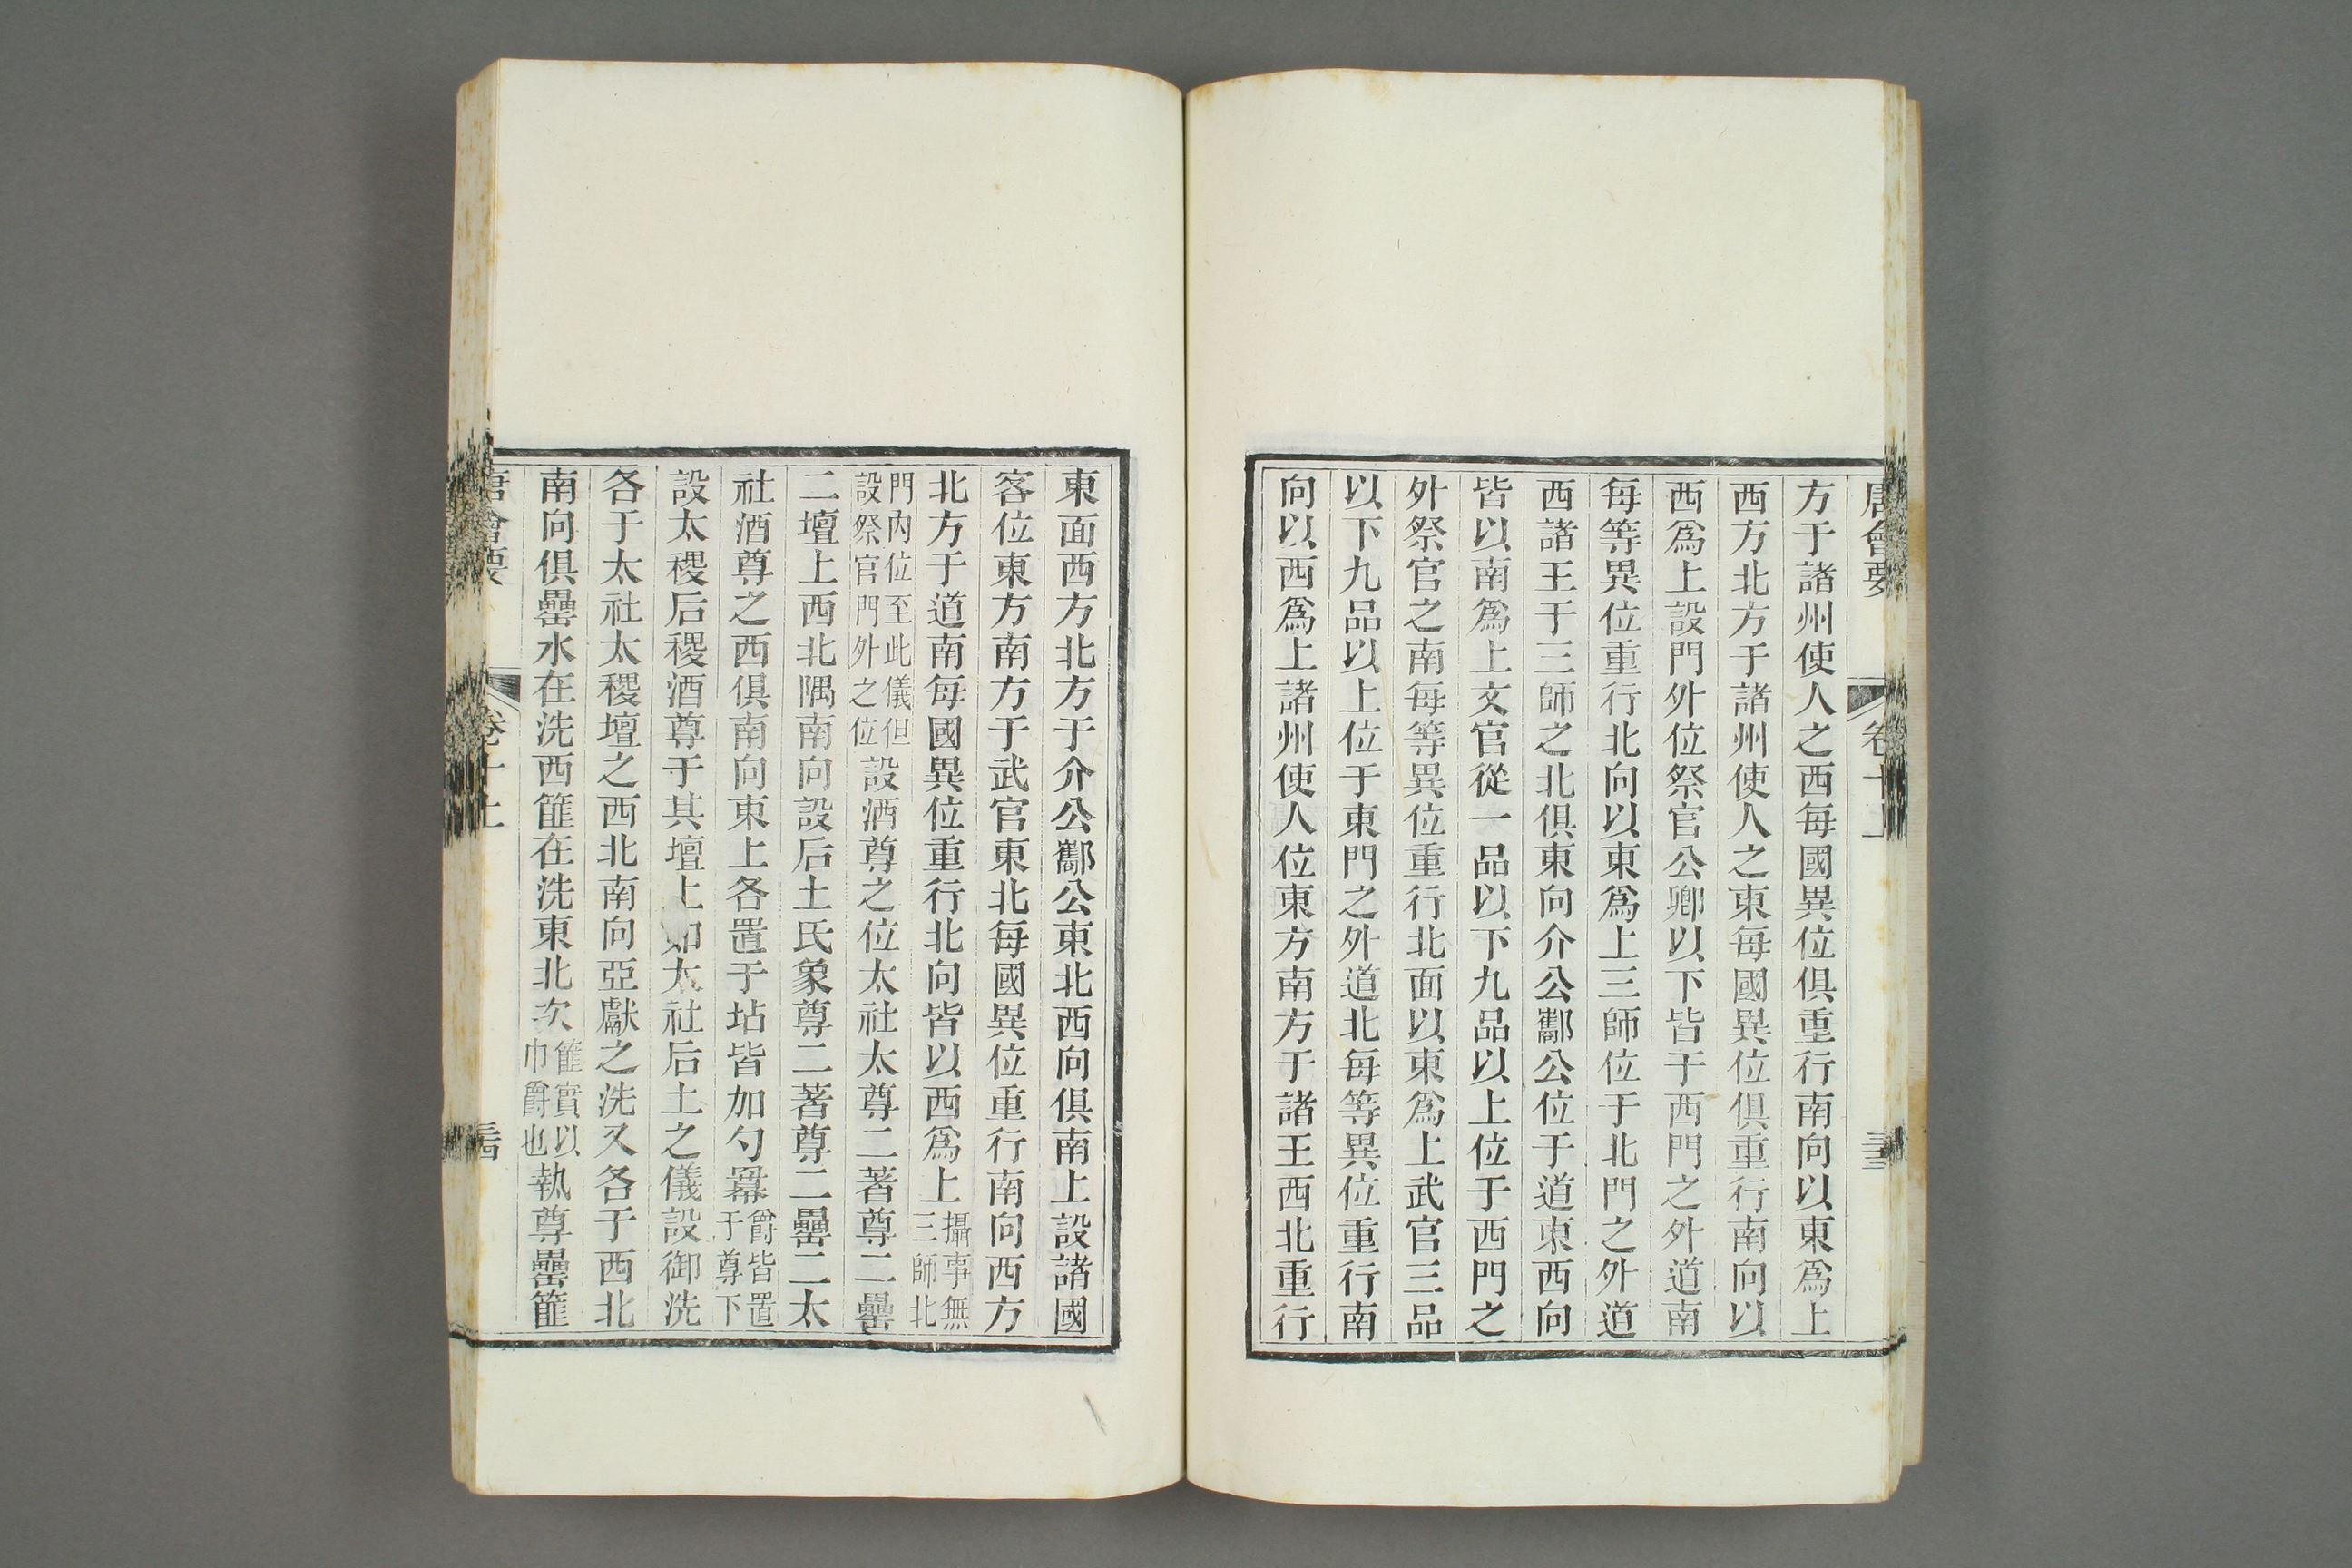 唐會要 卷十上
方于諸州使人之西每國異位俱重行南向以東爲上
西方北方于諸州使人之東每國異位俱重行南向以
西爲上設門外位祭官公卿以下皆于西門之外道南
每等異位重行北向以東爲上三師位于北門之外道
西諸王于三師之北俱東向介公酅公位于道東西向
皆以南爲上文官從一品以下九品以上位于西門之
外祭官之南每等異位重行北面以東爲上武官三品
以下九品以上位于東門之外道北每等異位重行南
向以西爲上諸州使人位東方南方于諸王西北重行
東面西方北方于介公酅公東北西向俱南上設諸國
客位東方南方于武官東北每國異位重行南向西方
北方于道南每國異位重行北向皆以西爲上攝事無三師北
門內位至此儀但設祭官門外之位設酒尊之位太社太尊二著尊二罍
二壇上西北隅南向設后土氏象尊二著尊二罍二太
社酒尊之西俱南向東上各置于坫皆加勺冪爵皆置于尊下
設太稷后稷酒尊于其壇上如太社后土之儀設御洗
各于太社太稷壇之西北南向亞獻之洗又各于西北
南向俱罍水在洗西篚在洗東北次篚實以巾爵也執尊罍篚
唐會要 卷十上